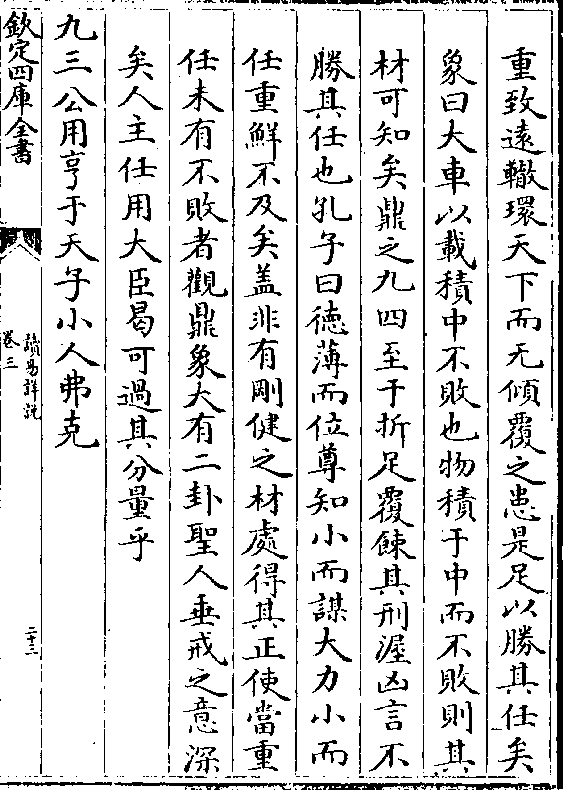 重致遠轍環天下而无傾覆之患是足以勝其任矣
象曰大車以載積中不敗也物積于中而不敗則其
材可知矣鼎之九四至于折足覆餗其刑渥凶言不
勝其任也孔子曰德薄而位尊知小而謀大力小而
任重鮮不及矣盖非有剛健之材處得其正使當重
任未有不敗者觀鼎象大有二卦聖人垂戒之意深
矣人主任用大臣曷可過其分量乎
九三公用亨于天子小人弗克
欽定四庫全書
讀易詳說
卷三
二十三